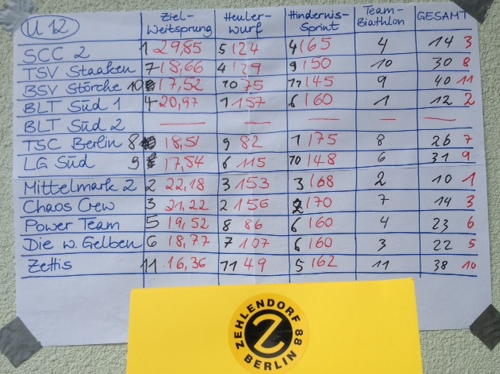 U 12 Ziel-Weitsprung Heuler-wurf Hindernis-Sprint Team-Biathlon GESAMT
SCC 2 1 29,85 5 124 4 165 4 14 3
TSV Staaken 7 18,66 4 129 9 150 10 30 8
BSV Störche 10 17,52 10 75 11 145 9 40 11
BLT Süd 1 4 20,97 1 157 6 160 1 12 2
BLT Süd 2 — — — — —
TSC Berlin 8 18,51 9 82 1 175 8 26 7
LG Süd 9 17,54 6 115 10 148 6 31 9
Mittelmark 2 2 22,18 3 153 3 168 2 10 1
Chaos Crew 3 21,22 2 156 2 170 7 14 3
Power Team 5 19,52 8 86 6 160 4 23 6
Die w. Gelben 6 18,77 7 107 6 160 3 22 5
Zettis 11 16,36 11 49 5 162 11 38 10
ZEHLENDORF 88
Z
BERLIN